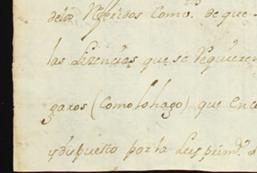 delos Referidos Como. de que
las Lizencias que se Requieren
gazos (Comolohago) que en ca
ydispuesto por la Ley prim.ª d